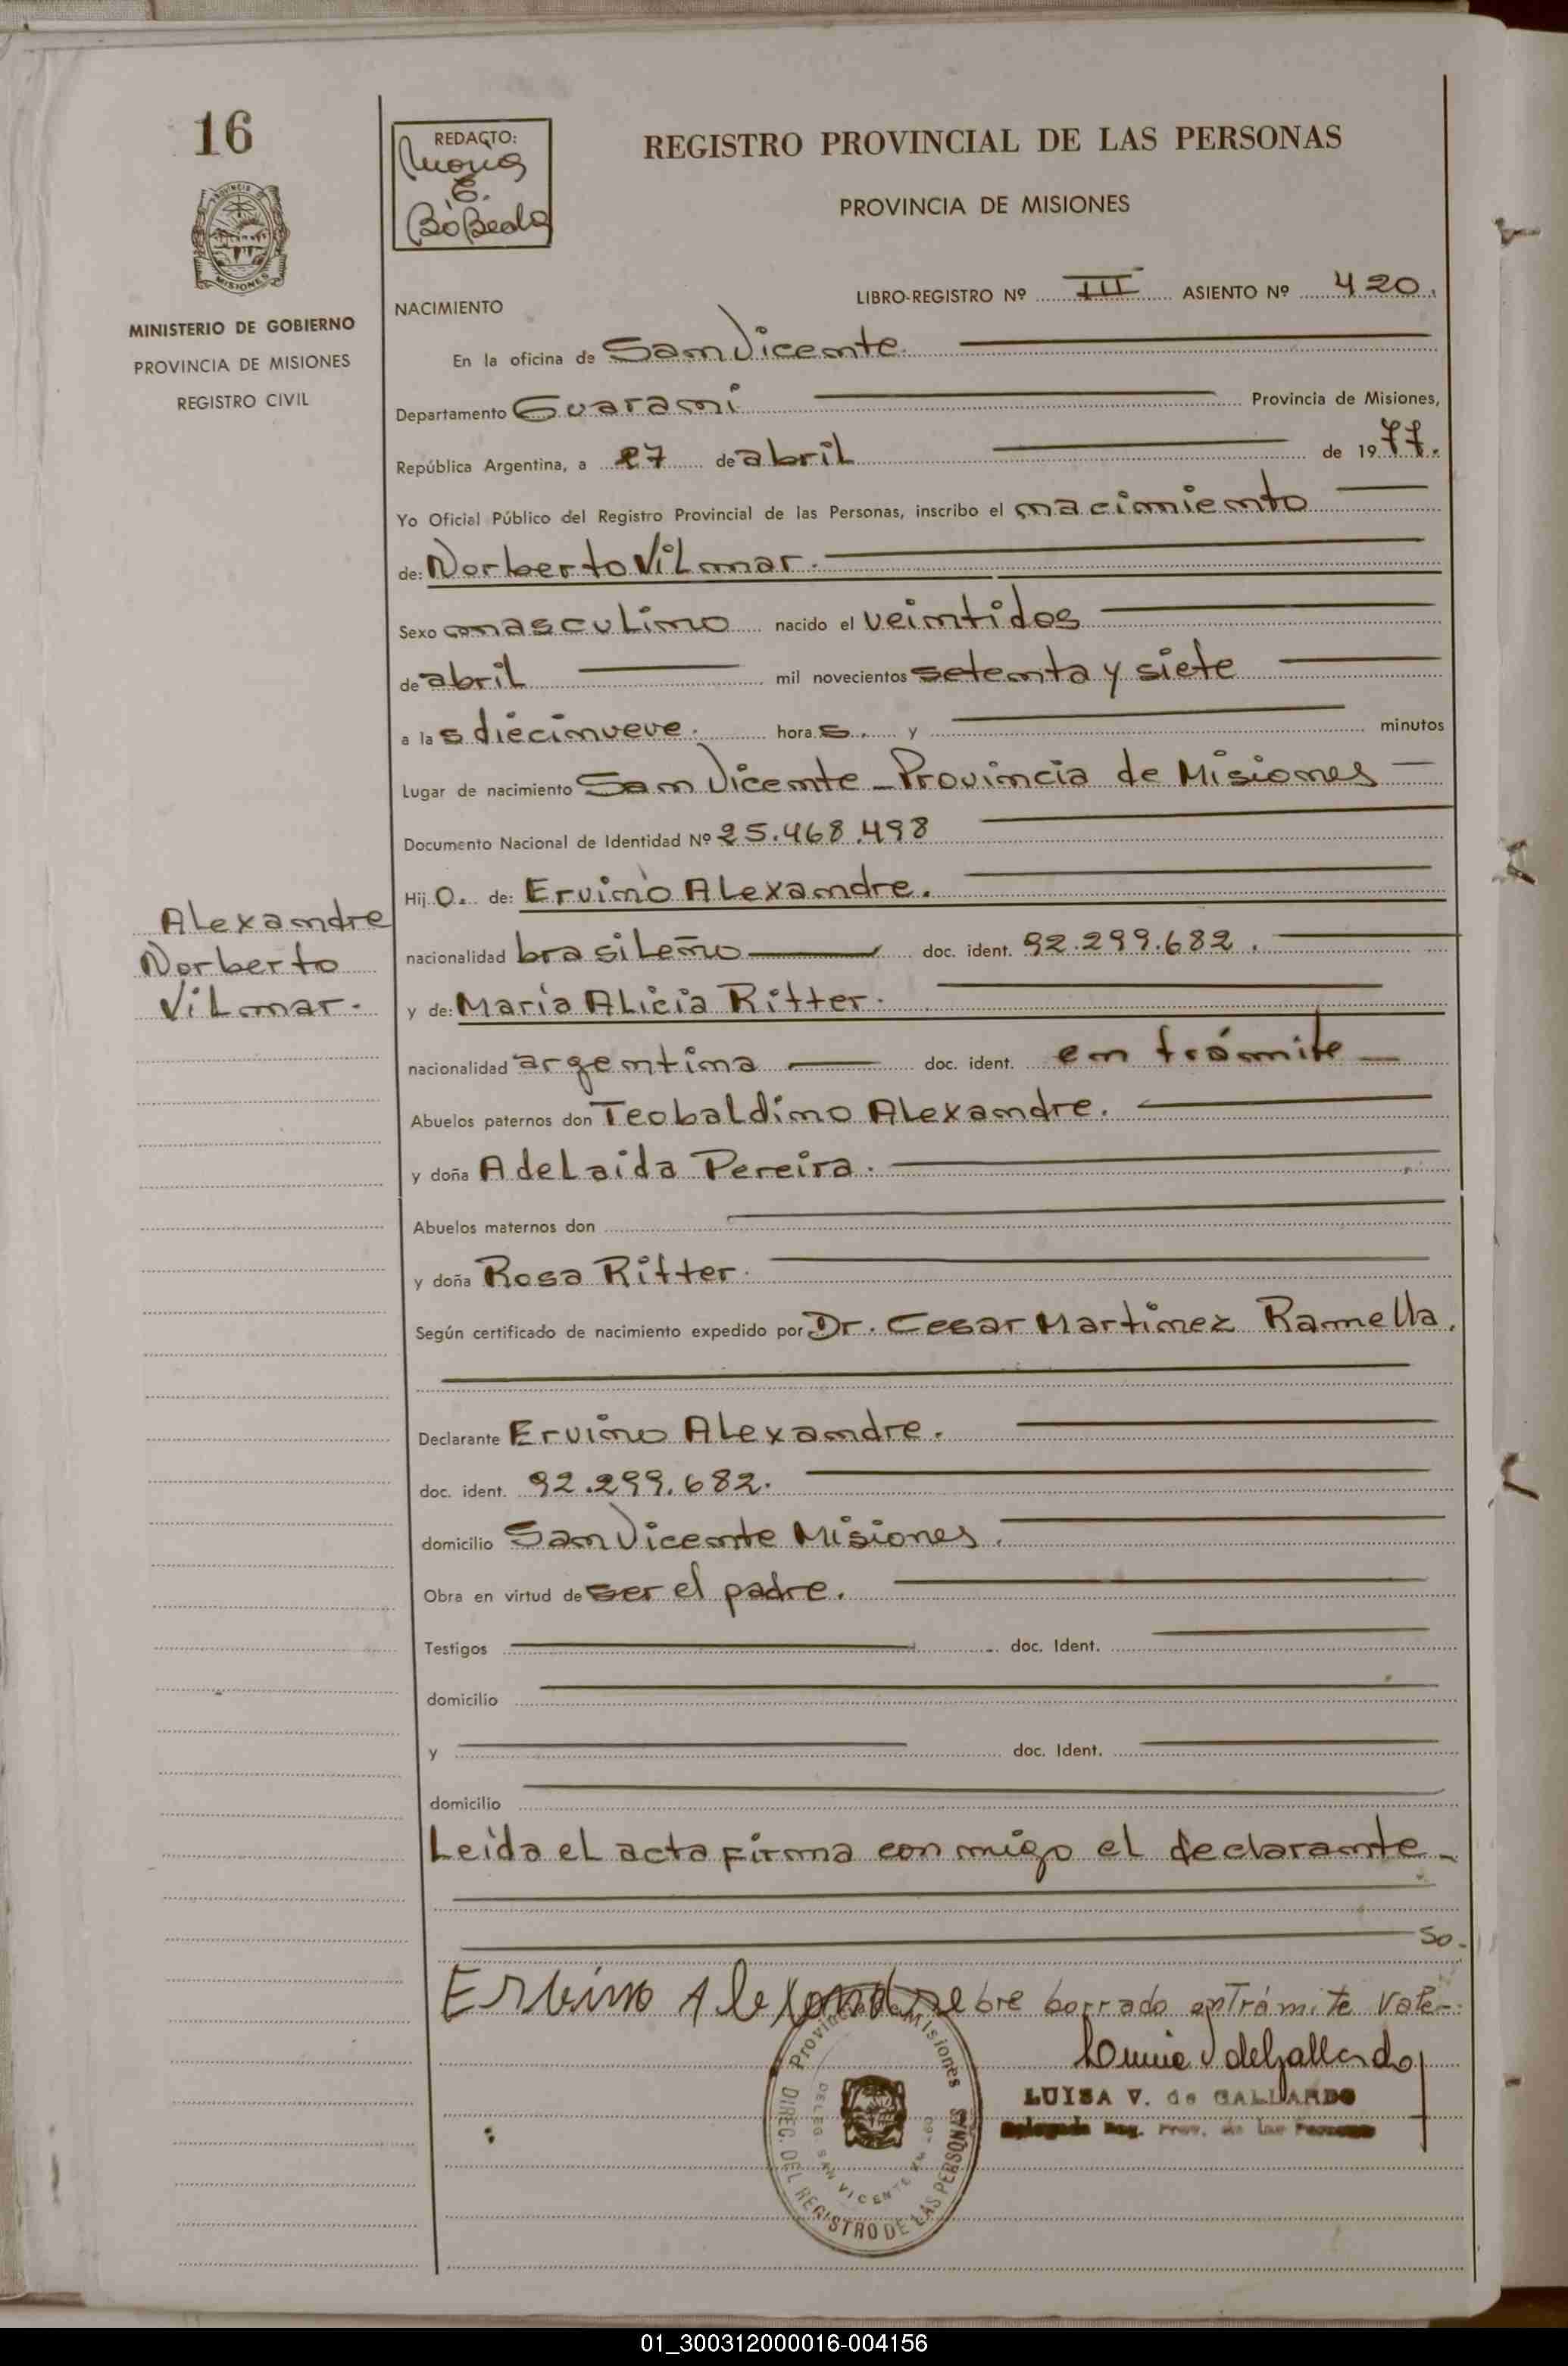 16
REDACTO:
E.
BóBeda
REGISTRO PROVINCIAL DE LAS PERSONAS
PROVINCIA DE MISIONES
MISIONES
MINISTERIO DE GOBIERNO
PROVINCIA DE MISIONES
REGISTRO CIVIL
LIBRO-REGISTRO Nº III ASIENTO Nº 420.
NACIMIENTO
En la oficina de San Vicente.
Departamento Guaraní Provincia de Misiones,
República Argentina, a 27 de abril de 1977.
Yo Oficial Público del Registro Provincial de las Personas, inscribo el nacimiento
de: Norberto Vilmar.
Sexo masculino nacido el veintidos
de abril mil novecientos setenta y siete
a las diecinueve. horas. y minutos
Lugar de nacimiento San Vicente - Provincia de Misiones
Documento Nacional de Identidad Nº 25.468.498
Hijo. de: Ervino Alexandre.
nacionalidad brasileño doc. ident. 92.299.682.
y de: María Alicia Ritter.
nacionalidad argentina doc. ident. en trámite
Abuelos paternos don Teobaldino Alexandre.
y doña Adelaida Pereira.
Abuelos maternos don
y doña Rosa Ritter.
Según certificado de nacimiento expedido por Dr. Cesar Martinez Ramella.
Alexandre
Norberto
Vilmar.
Declarante Ervino Alexandre.
doc. ident. 92.299.682.
domicilio San Vicente Misiones.
Obra en virtud de ser el padre.
Testigos doc. Ident.
domicilio
y doc. Ident.
domicilio
Leída el acta firma conmigo el declarante -
So.
Ervino Alexandre bre borrado entrámite Vale-
Provincia de Misiones
DIREC. DEL REGISTRO DE LAS PERSONAS
DELEG. SAN VICENTE
LUISA V. de GALLARDO
Delegada Reg. Prov. de las Personas
01_300312000016-004156